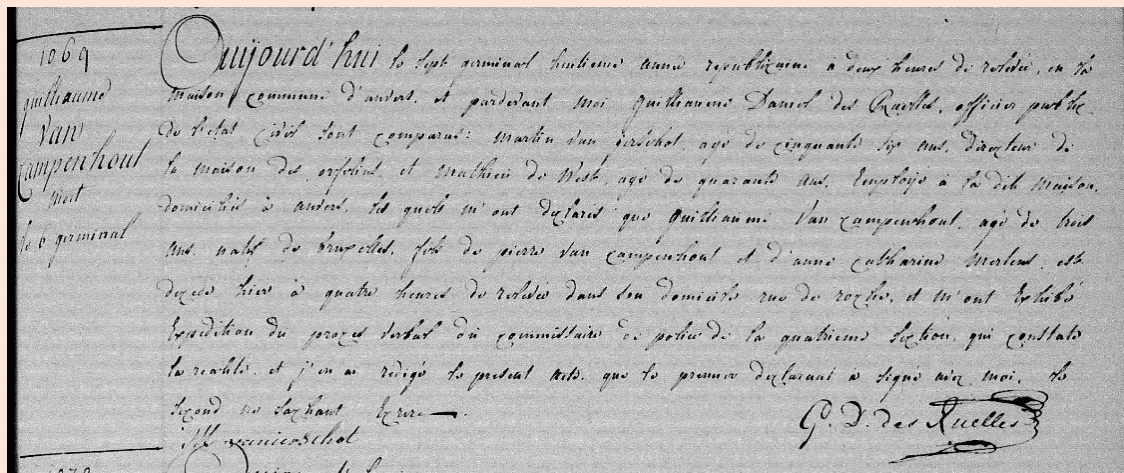 1069
guilliaume
Van
Campenhout
mort
le 6 germinal
Aujourd'hui le sept germinal huitieme année republicaine a deux heures de relevée, en la
maison commune d'anvers, et pardevant moi Guilliaume Daniel des Ruelles, officier public
de l'etat civil sont comparus: Martin Van ierschot, agé de cinquante six ans, directeur de
la maison des orfelins, et Mathieu de West, agé de quarante ans, Employé à la dite maison,
domiciliés à anvers, les quels m'ont declarés que Guilliaume Van campenhout, agé de trois
ans, natif de bruxelles, fils de pierre Van campenhout et d'anne catharine Mertens, est
decede hier à quatre heures de relevée dans son domicile rue de roches, et m'ont Exhibé
Expedition du proces verbal du commissaire de police de la quatrieme section, qui constate
la realité, et j'en ai redigé le present acte, que le premier declarant a signé avec moi, le
second ne sachant Ecrire.
M vanierschot
G. D. des Ruelles